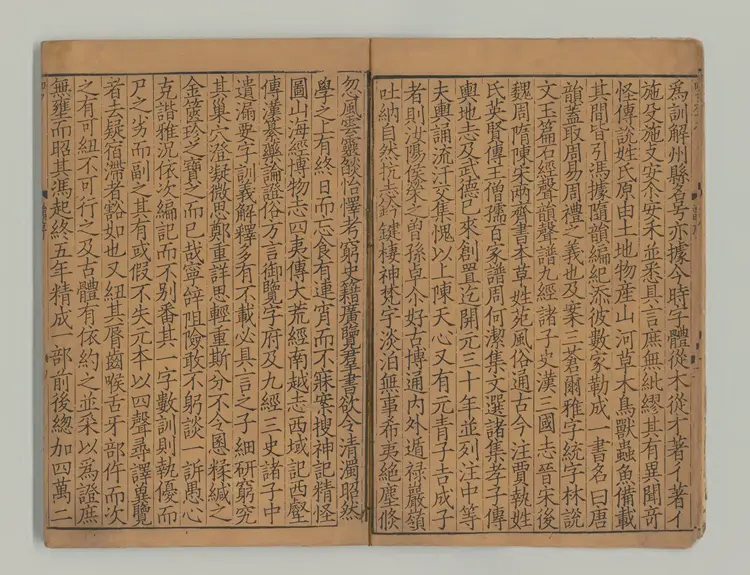 為訓解州縣名号亦據今時字體從木從才著彳著亻
施殳施攴安尒安禾並悉具言庶無紕繆其有異聞奇
怪傳說姓氏原由土地物産山河草木鳥獸蟲魚備載
其間皆引馮據隨韻編紀添彼數家勒成一書名曰唐
韻蓋取周易周禮之義也及案三蒼爾雅字統字林說
文玉篇石經聲韻聲譜九經諸子史漢三國志晉宋後
魏周隋陳宋兩齊書本草姓苑風俗通古今注賈執姓
氏英賢傳王僧孺百家譜周何潔集文選諸集孝子傳
輿地志及武德已來創置迄開元三十年並列注中等
夫輿誦流汗交集愧以上陳天心又有元青子吉成子
者則汝陽侯榮之曽孫卓尒好古博通内外遁禄巖嶺
吐納自然抗志鈐鍵棲神梵宇淡泊無事希夷絶塵倏
忽風雲靈燄怡懌考窮史籍廣覽羣書欲令清濁昭然
學之上有終日而忘食有連宵而不寐案搜神記精怪
圖山海經博物志四夷傳大荒經南越志西域記西壑
傳漢纂藥論證俗方言御覽字府及九經三史諸子中
遺漏要字訓義解釋多有不載必具言之子細研窮究
其巢穴澄凝微思鄭重詳思輕重斯分不令慁糅緘之
金篋珍之寶之而已哉寧辝阻險敢不躬談一訴愚心
克諧雅況依次編記而不别番其一字數訓則執優而
尸之劣而副之其有或假不失元本以四聲尋譯冀覽
者去疑宿滯者豁如也又紐其脣齒喉舌牙部仵而次
之有可紐不可行之及古體有依約之並采以為證庶
無壅而昭其馮起終五年精成一部前後總加四萬二